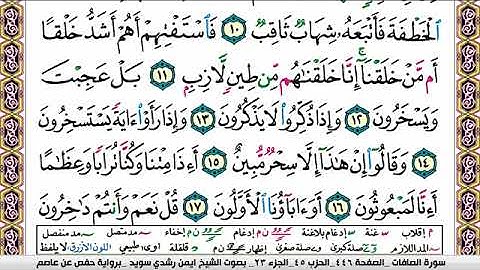 ٱلْخَطْفَةَ فَأَتْبَعَهُۥ شِهَابٌ ثَاقِبٌ ١٠ فَٱسْتَفْتِهِمْ أَهُمْ أَشَدُّ خَلْقًا
أَم مَّنْ خَلَقْنَآ ۚ إِنَّا خَلَقْنَٰهُم مِّن طِينٍ لَّازِبٍۭ ١١ بَلْ عَجِبْتَ
وَيَسْخَرُونَ ١٢ وَإِذَا ذُكِّرُوا۟ لَا يَذْكُرُونَ ١٣ وَإِذَا رَأَوْا۟ ءَايَةً يَسْتَسْخِرُونَ
١٤ وَقَالُوٓا۟ إِنْ هَٰذَآ إِلَّا سِحْرٌ مُّبِينٌ ١٥ أَءِذَا مِتْنَا وَكُنَّا تُرَابًا وَعِظَٰمًا
أَءِنَّا لَمَبْعُوثُونَ ١٦ أَوَءَابَآؤُنَا ٱلْأَوَّلُونَ ١٧ قُلْ نَعَمْ وَأَنتُمْ دَٰخِرُونَ
م إقلاب غنة إدغام بلاغنة إدغام إخفاء مد متصل مد منفصل
صلة كبرى صلة صغرى إظهار قلقلة طبيعي اللون الأزرق لا يلفظ
سورة الصافات _الصفحة ٤٤٦_ الحزب ٤٥_ الجزء ٢٣_ بصوت الشيخ ايمن رشدي سويد _برواية حفص عن عاصم